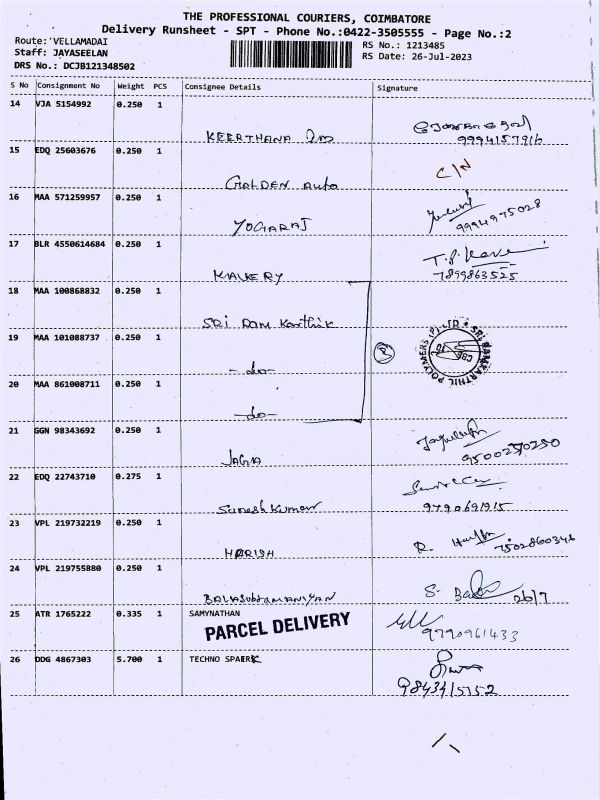 THE PROFESSIONAL COURIERS, COIMBATORE
Delivery Runsheet - SPT - Phone No.:0422-3505555 - Page No.:2
Route: VELLAMADAI
RS No.: 1213485
Staff: JAYASEELAN
RS Date: 26-Jul-2023
DRS No.: DCJB121348502
S No Consignment No Weight PCS Consignee Details Signature
14 VJA 5154992 0.250 1
KEERTHANA
9994157916
15 EDQ 25603676 0.250 1
C/N
GOLDEN Auto
16 MAA 571259957 0.250 1
YOGARAJ
9994975028
17 BLR 4550614684 0.250 1
7899863525
18 MAA 100868832 0.250 1
SRI RAM Karthik
19 MAA 101088737 0.250 1
-do-
20 MAA 861008711 0.250 1
-do-
21 GGN 98343692 0.250 1
9500270250
22 EDQ 22743710 0.275 1
Suresh Kumar
9790691915
23 VPL 219732219 0.250 1
HARISH
7502860346
24 VPL 219755880 0.250 1
BALASUbramaniyan
26/7
25 ATR 1765222 0.335 1 SAMYNATHAN
PARCEL DELIVERY
9790961433
26 DDG 4867303 5.700 1 TECHNO SPAERK
9843415152